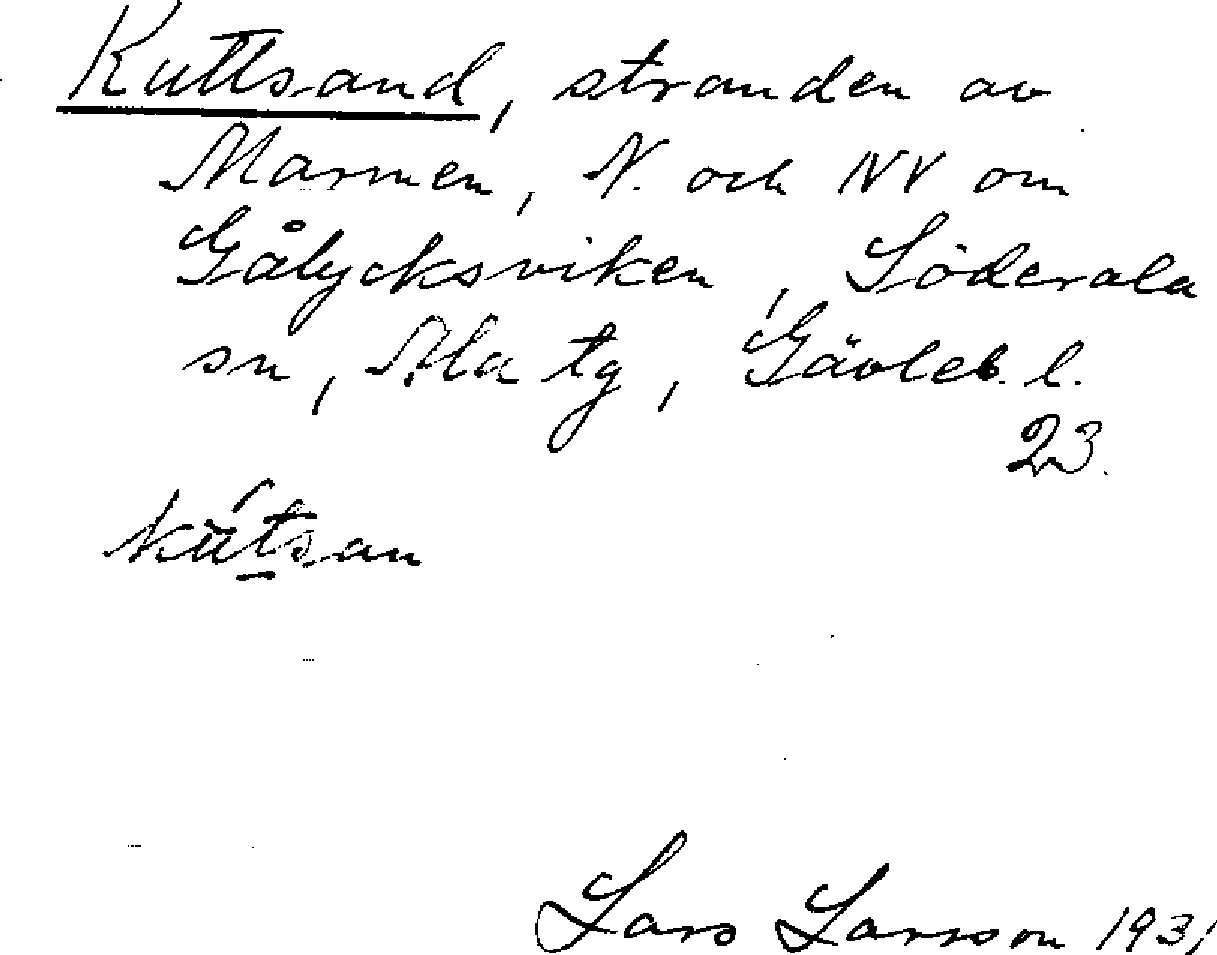 Kuttsand, stranden av
Marmen, N. och NV om
Gålycksviken, Söderala
sn, Ala tg, Gävleb. l.
23.
Lars Larsson 1931